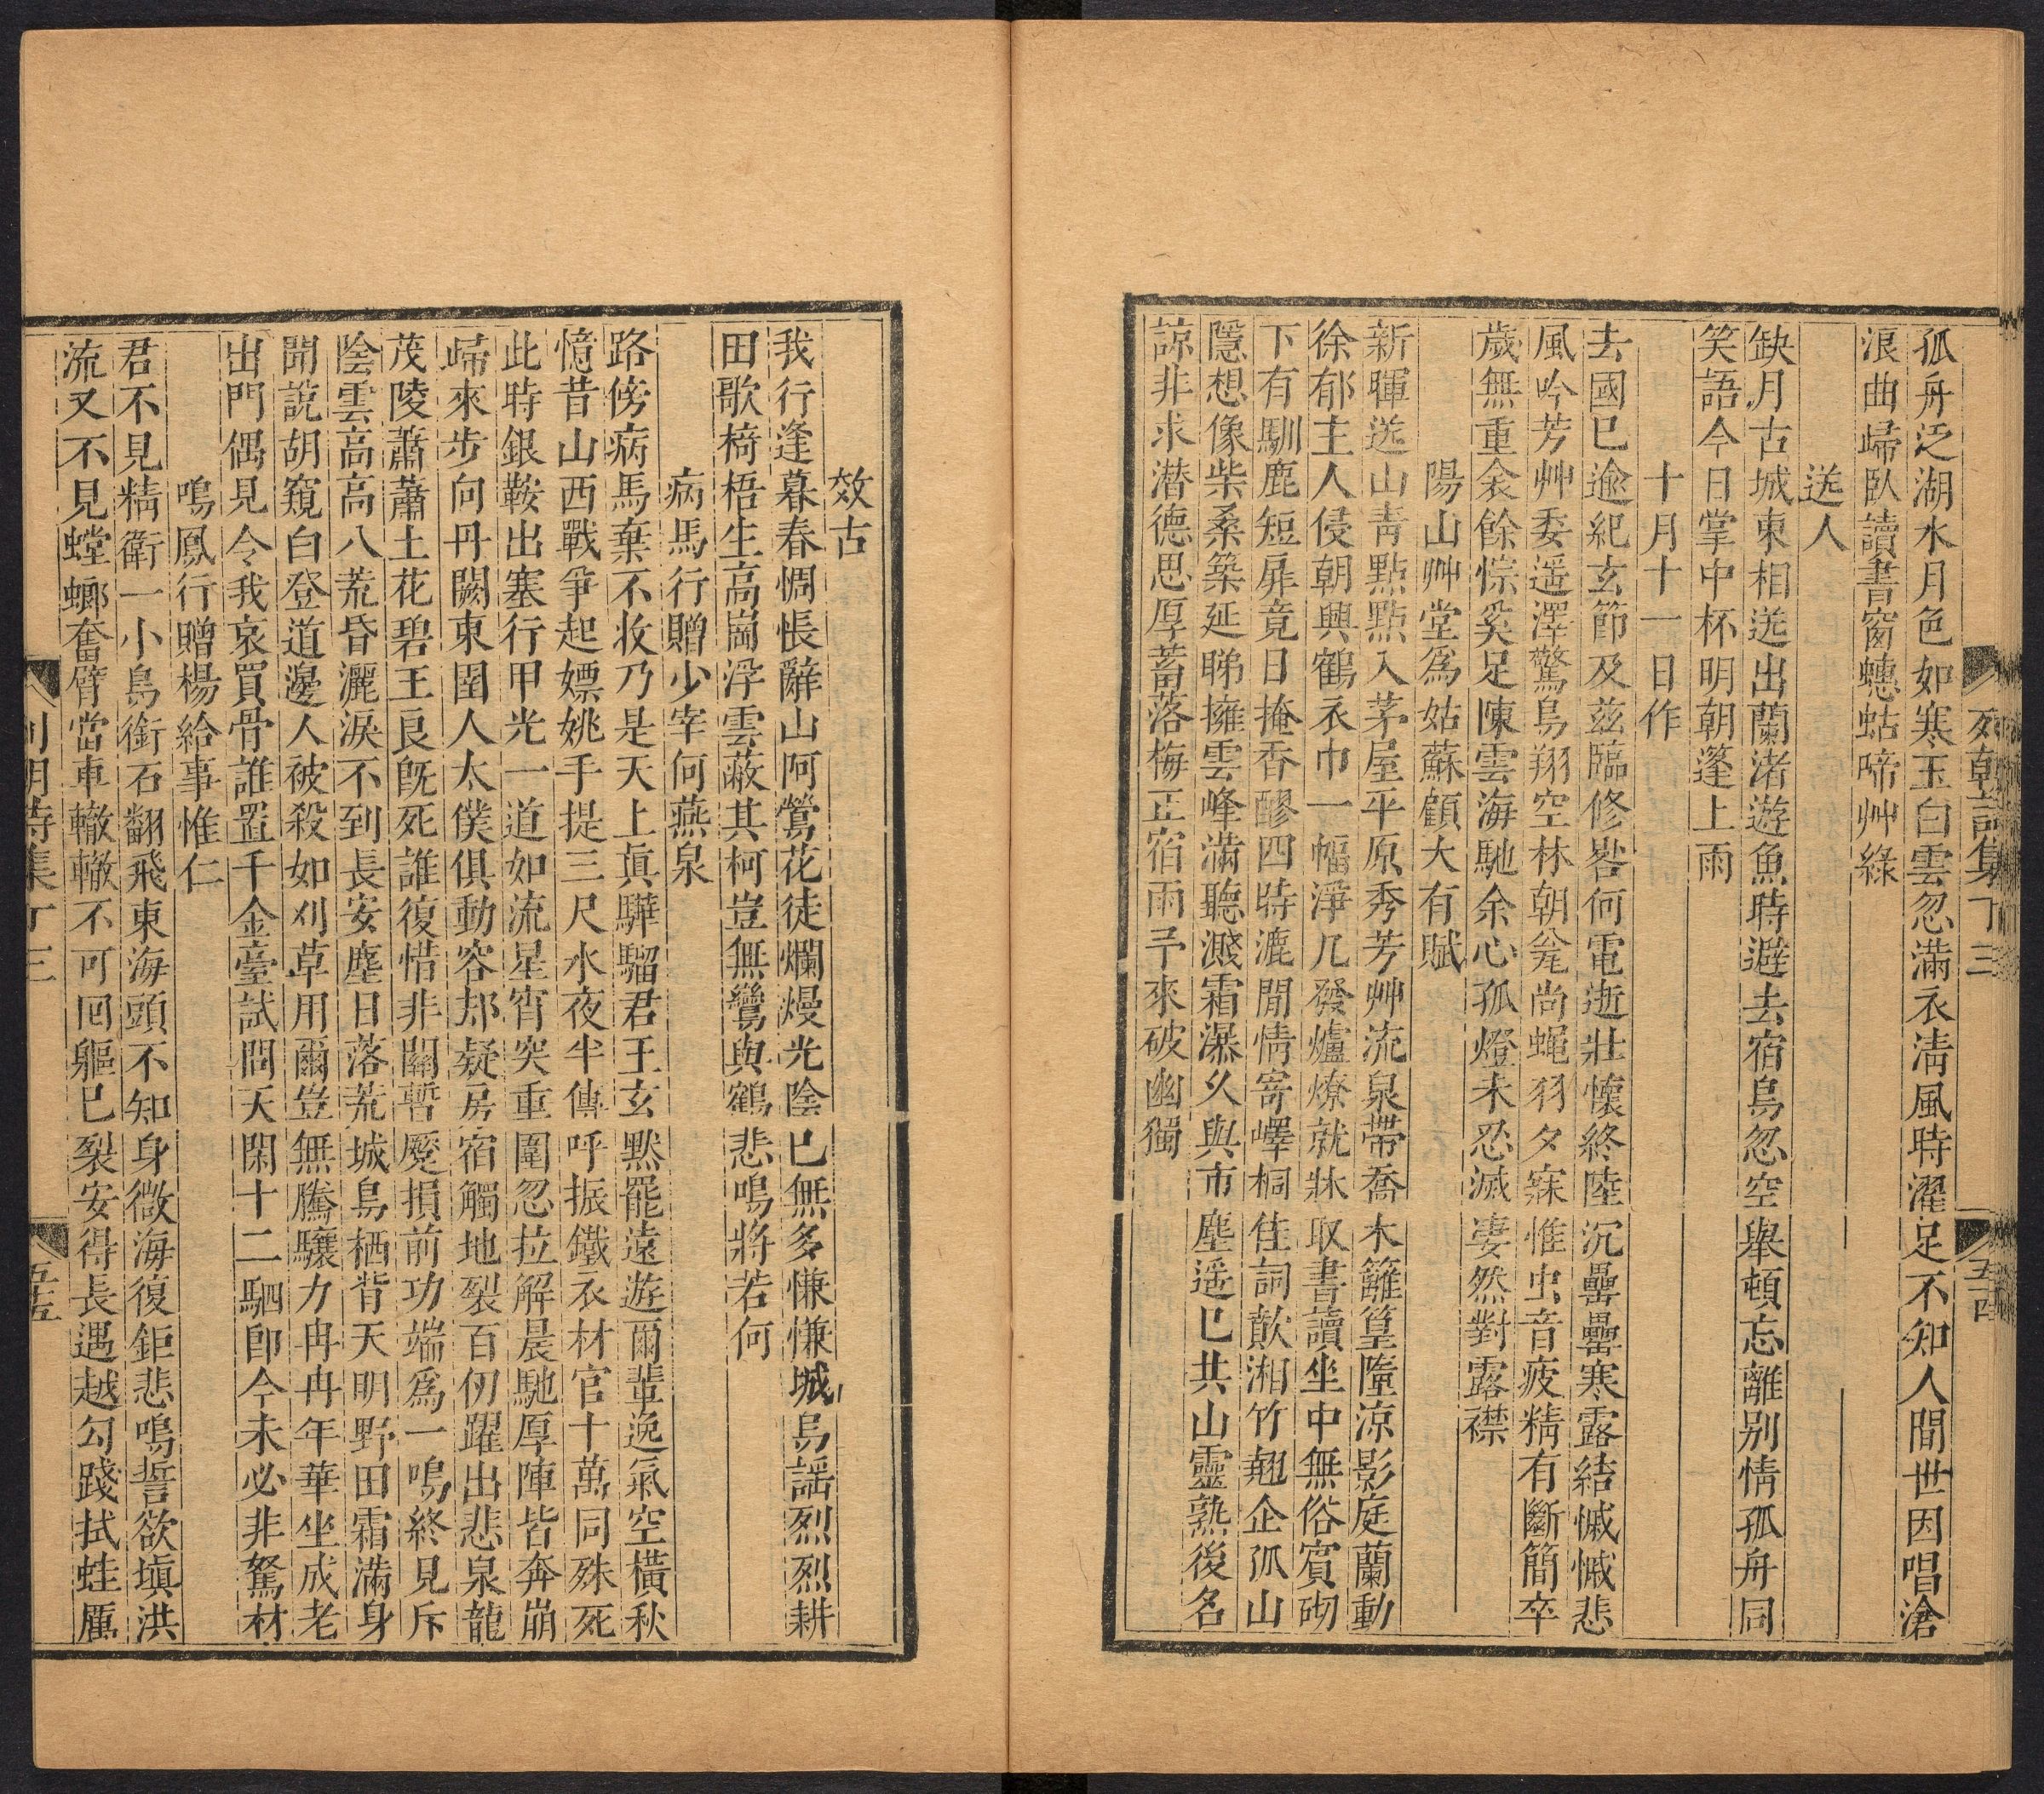 列朝詩集丁三
五十四
孤舟泛湖水月色如寒玉白雲忽滿衣淸風時濯足不知人間世因唱滄
浪曲歸臥讀書窗蟪蛄啼艸綠
送人
缺月古城東相送出蘭渚遊魚時避去宿鳥忽空舉頓忘離别情孤舟同
笑語今日掌中杯明朝蓬上雨
十月十一日作
去國已逾紀玄節及茲臨修晷何電逝壯懷終陸沉罍罍寒露結慽慽悲
風吟芳艸委遥澤驚鳥翔空林朝㒶尚蠅羽夕寐惟虫音疲精有斷簡卒
歲無重衾餘悰奚足陳雲海馳余心孤燈未忍滅凄然對露襟
陽山艸堂爲姑蘇顧大有賦
新暉送山靑點點入茅屋平原秀芳艸流泉帶喬木籬篁墮凉影庭蘭動
徐郁主人侵朝興鶴衣巾一幅淨几發爐燎就牀取書讀坐中無俗賓砌
下有馴鹿短扉竟日掩香醪四時漉閒情寄嶧桐佳詞歕湘竹翹企孤山
隱想像柴桑築延睇擁雲峰滿聽濺霜瀑久與市塵遥已共山靈熟後名
諒非求潜德思厚蓄落梅正宿雨予來破幽獨
效古
我行逢暮春惆悵辭山阿鶯花徒爛熳光陰已無多慊慊城烏謡烈烈耕
田歌椅梧生高崗浮雲蔽其柯豈無鸞與鶴悲鳴將若何
病馬行贈少宰何燕泉
路傍病馬棄不收乃是天上眞驊騮君王玄默罷遠遊爾輩逸氣空橫秋
憶昔山西戰爭起嫖姚手提三尺水夜半傳呼振鐵衣材官十萬同殊死
此時銀鞍出塞行甲光一道如流星宵突重圍忽拉解晨馳厚陣皆奔崩
歸來步向丹闕東圉人太僕俱動容却疑房宿觸地裂百仞躍出悲泉龍
茂陵蕭蕭土花碧王良旣死誰復惜非關暫蹷損前功端爲一鳴終見斥
陰雲高高八荒昏灑淚不到長安塵日落荒城鳥栖背天明野田霜滿身
聞說胡窺白登道邊人被殺如刈草用爾豈無騰驤力冉冉年華坐成老
出門偶見令我哀買骨誰置千金臺試問天閑十二駟卽今未必非駑材
鳴鳳行贈楊給事惟仁
君不見精衛一小鳥銜石翻飛東海頭不知身微海復鉅悲鳴誓欲塡洪
流又不見螳螂奮臂當車轍轍不可囘軀已裂安得長遇越勾踐拭蛙厲
列朝詩集丁三
五十五